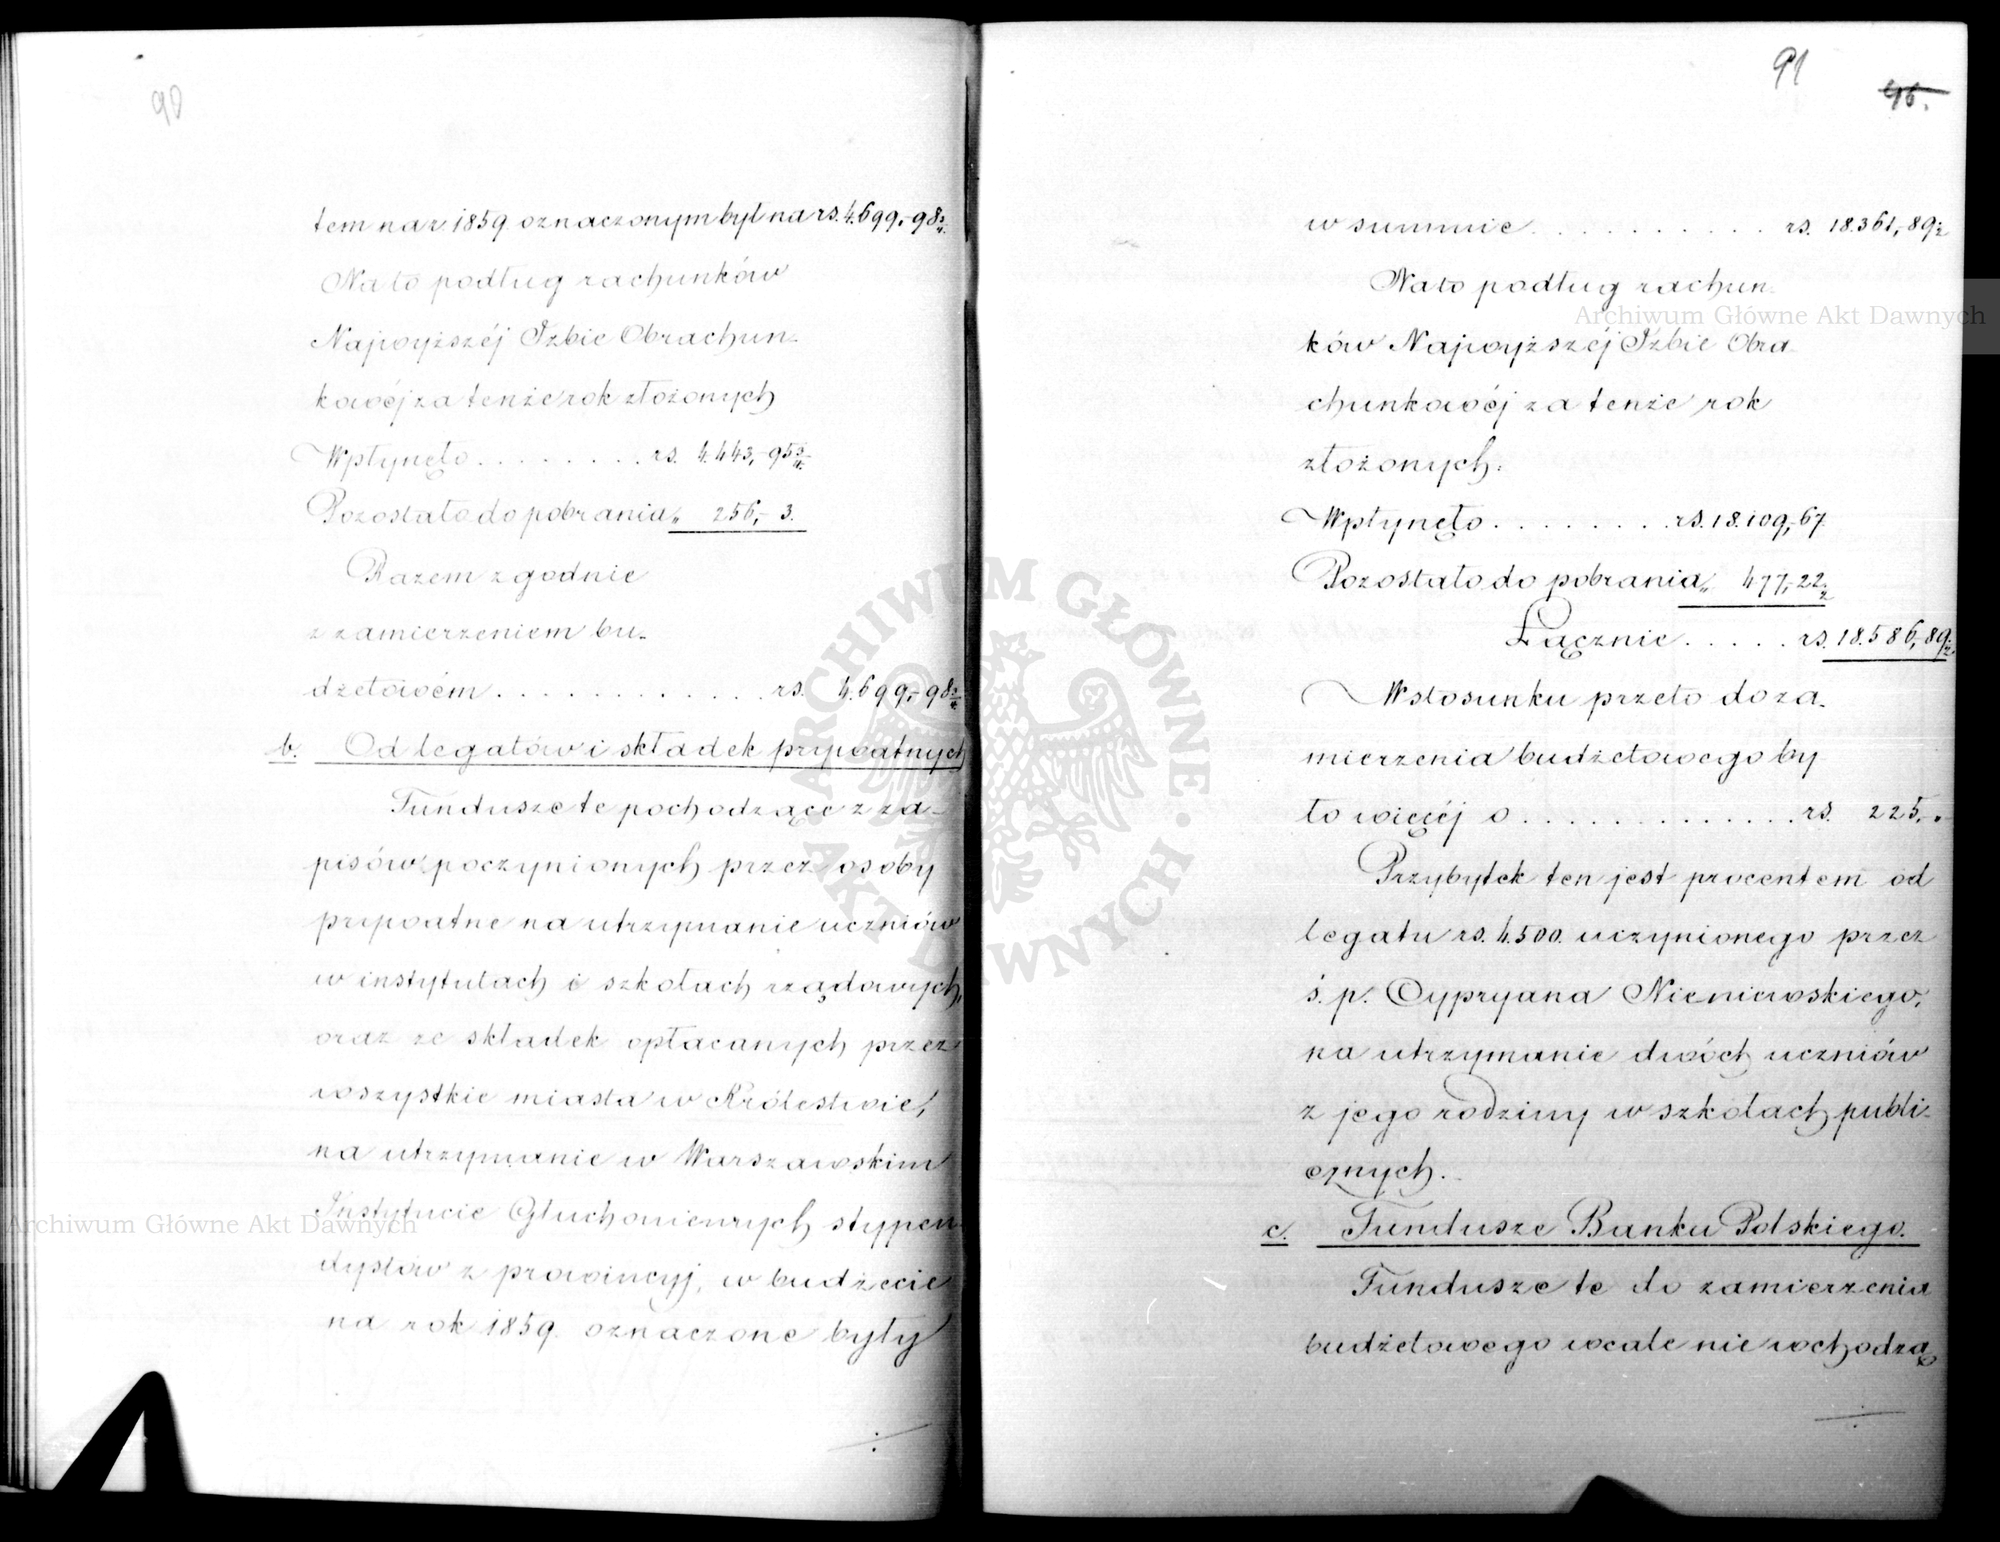 90
tem na r. 1859 oznaczonym był na rs. 4.699,-98 3/4.
Na to podług rachunków
Najwyższéj Izbie Obrachun-
kowéj za tenże rok złożonych
Wpłynęło . . . . . . . . rs. 4.443,-95 3/4.
Pozostało do pobrania „ 256,- 3.
Razem zgodnie
z zamierzeniem bu-
dżetowém . . . . . . . . . . . . . rs. 4.699,-98 3/4.
b. Od legatów i składek prywatnych
Fundusze te pochodzące z za-
pisów poczynionych przez osoby
prywatne na utrzymanie uczniów
w instytutach i szkołach rządowych,
oraz ze składek opłacanych przez
wszystkie miasta w Królestwie,
na utrzymanie w Warszawskim
Instytucie Głuchoniemych stypen-
dystów z prowincyj, w budżecie
na rok 1859. oznaczone były
91
46.
w summie . . . . . . . . . . . rs. 18.361,-89 1/2
Na to podług rachun-
ków Najwyższéj Izbie Obra-
chunkowéj za tenże rok
złożonych:
Wpłynęło . . . . . . . . rs. 18.109,-67.
Pozostało do pobrania „ 477,-22 1/2
Łącznie . . . . . rs. 18.586,-89 1/2.
W stosunku przeto do za-
mierzenia budżetowego by-
ło więcéj o . . . . . . . . . . . . . rs. 225,-.
Przybytek ten jest procentem od
legatu rs. 4.500. uczynionego przez
ś. p. Cypryana Nieniewskiego,
na utrzymanie dwóch uczniów
z jego rodziny w szkołach publi-
cznych.
c. Fundusze Banku Polskiego.
Fundusze te do zamierzenia
budżetowego wcale nie wchodzą
Archiwum Główne Akt Dawnych
Archiwum Główne Akt Dawnych
ARCHIWUM GŁÓWNE · AKT DAWNYCH ·